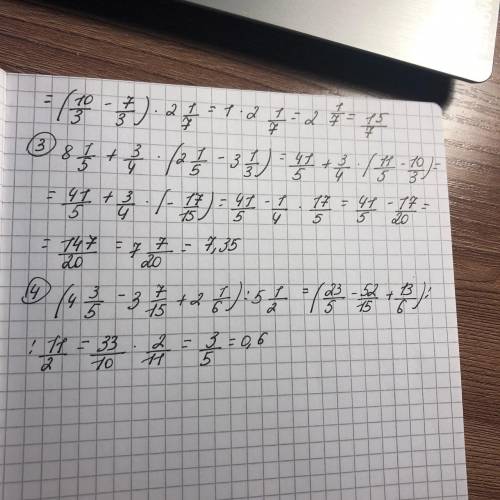 = (10/3 - 7/3) · 2 1/7 = 1 · 2 1/7 = 2 1/7 = 15/7
③ 8 1/5 + 3/4 · (2 1/5 - 3 1/3) = 41/5 + 3/4 · (11/5 - 10/3) =
= 41/5 + 3/4 · (- 17/15) = 41/5 - 1/4 · 17/5 = 41/5 - 17/20 =
= 147/20 = 7 7/20 = 7,35
④ (4 3/5 - 3 7/15 + 2 1/6) : 5 1/2 = (23/5 - 52/15 + 13/6) :
: 11/2 = 33/10 · 2/11 = 3/5 = 0,6